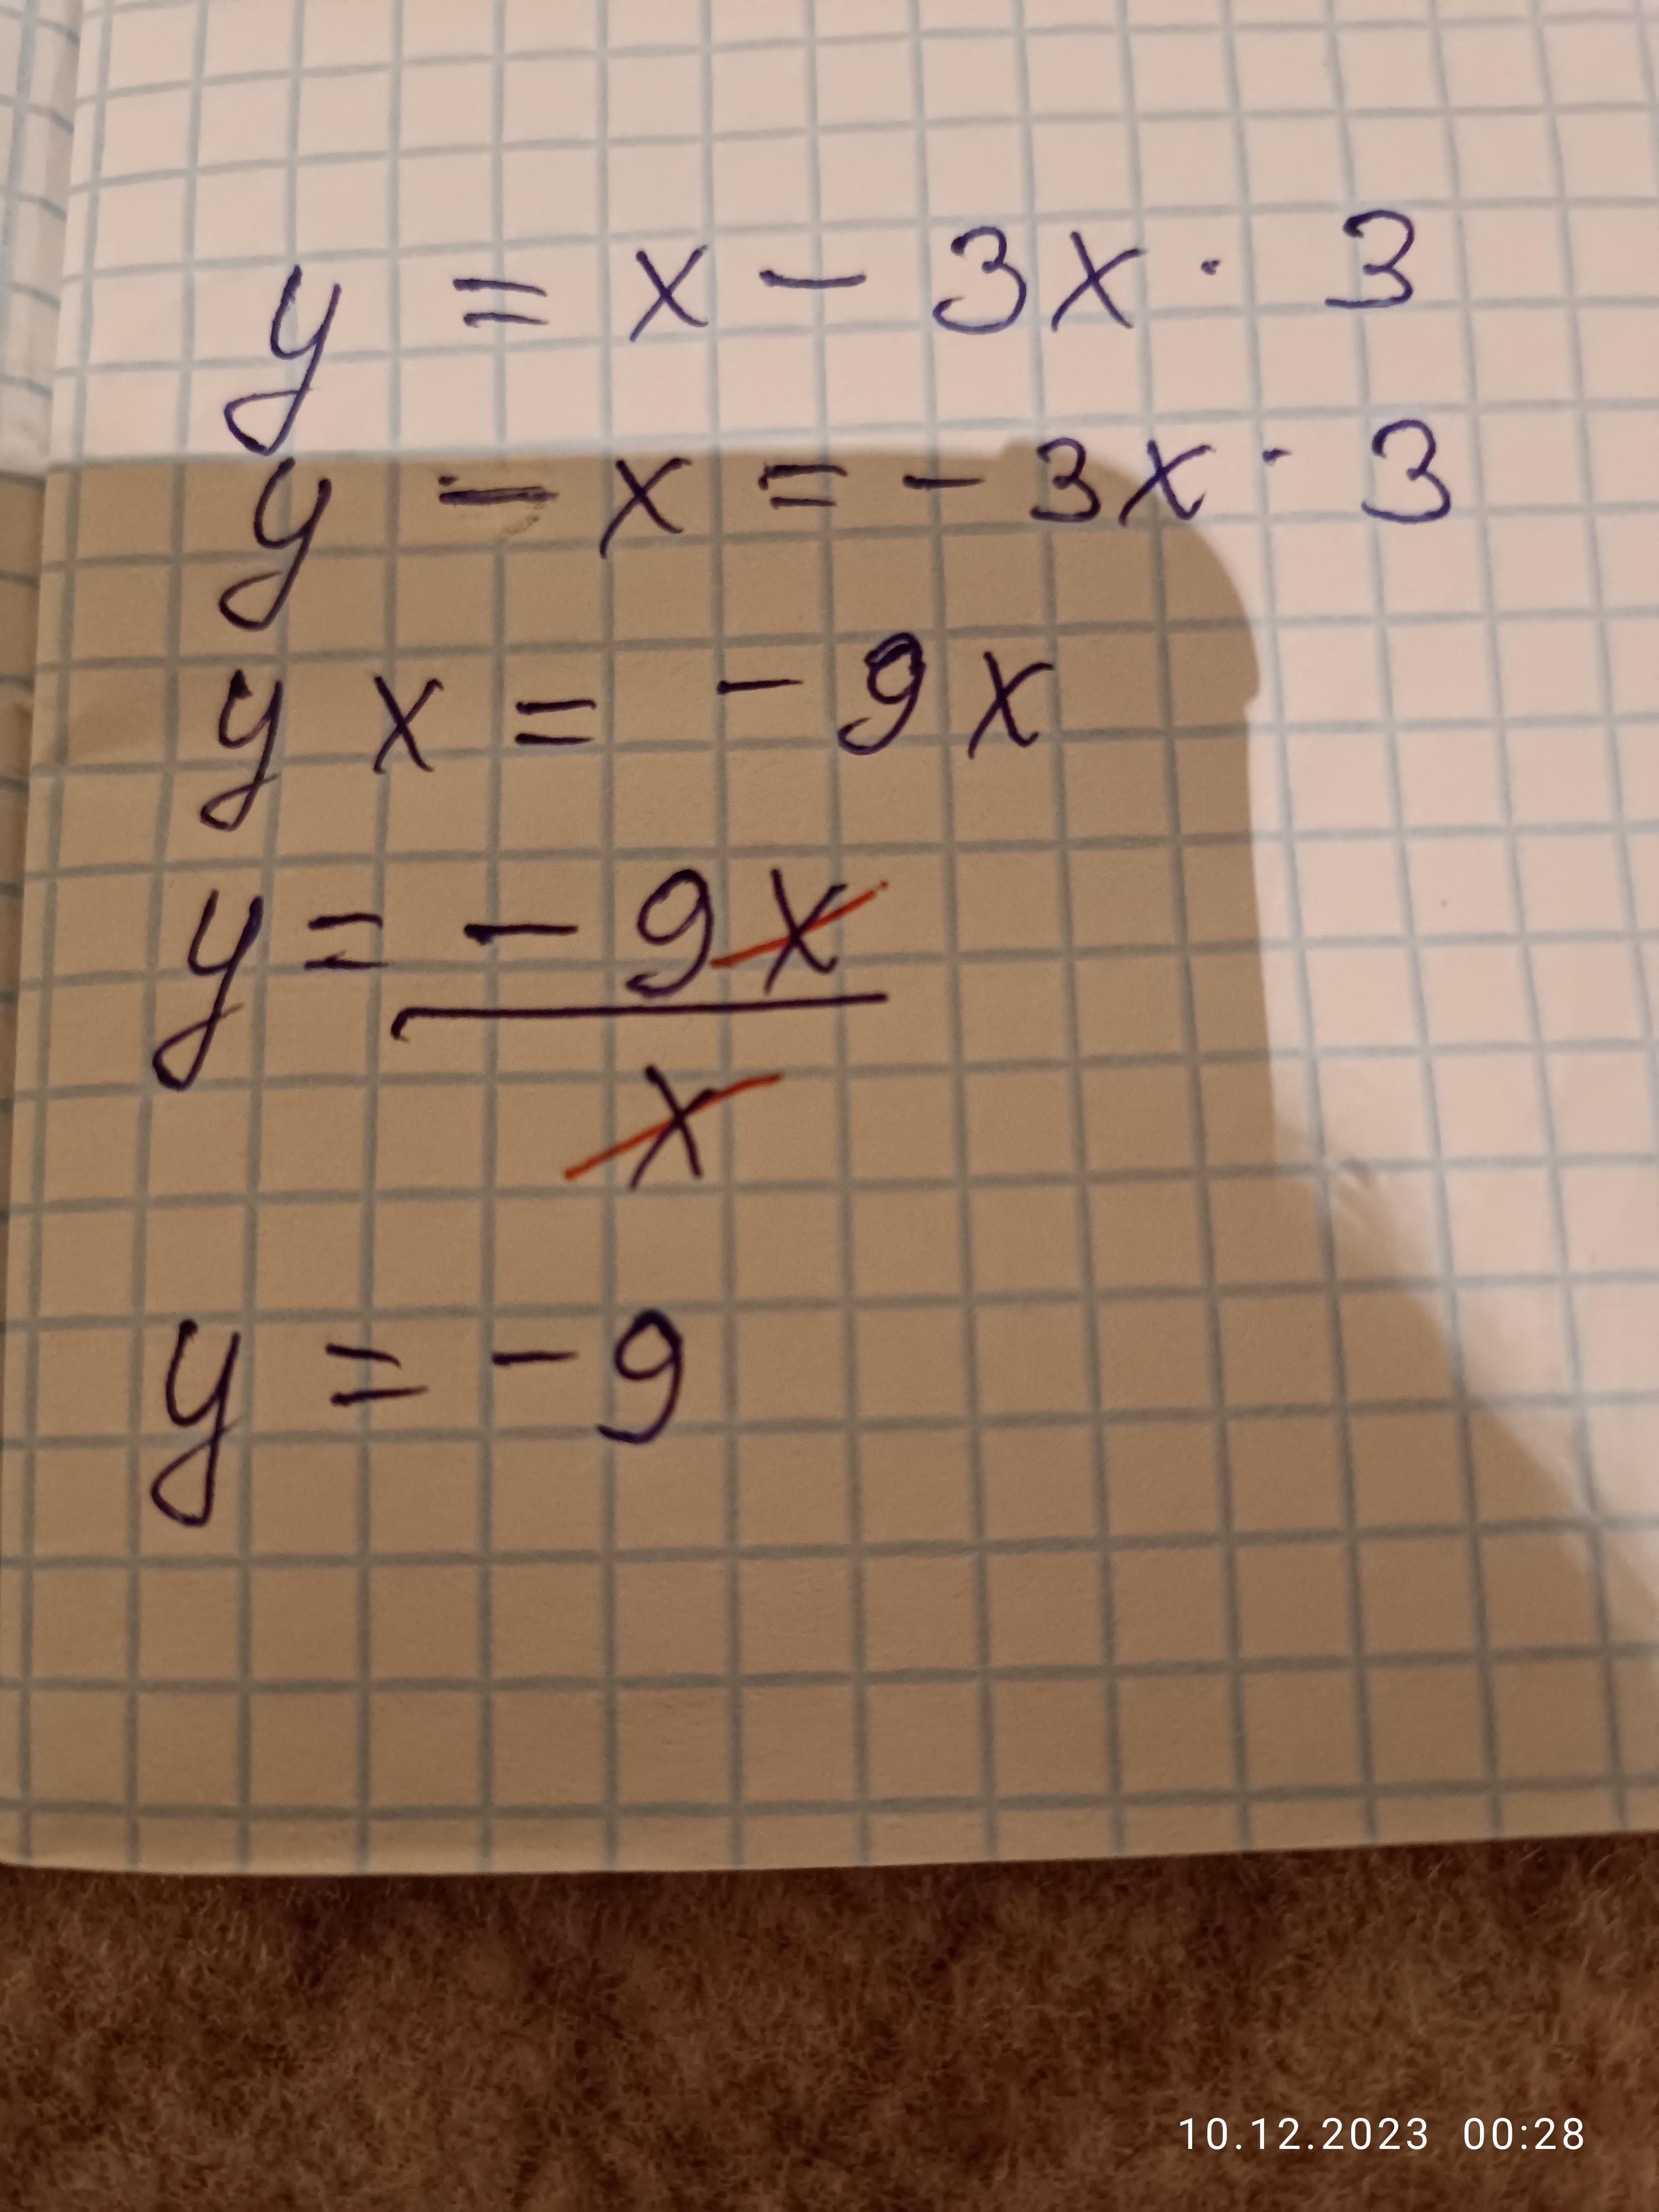 y = x - 3x · 3
y - x = - 3x · 3
y x = - 9x
y = - 9x
x
y = - 9
10.12.2023 00:28